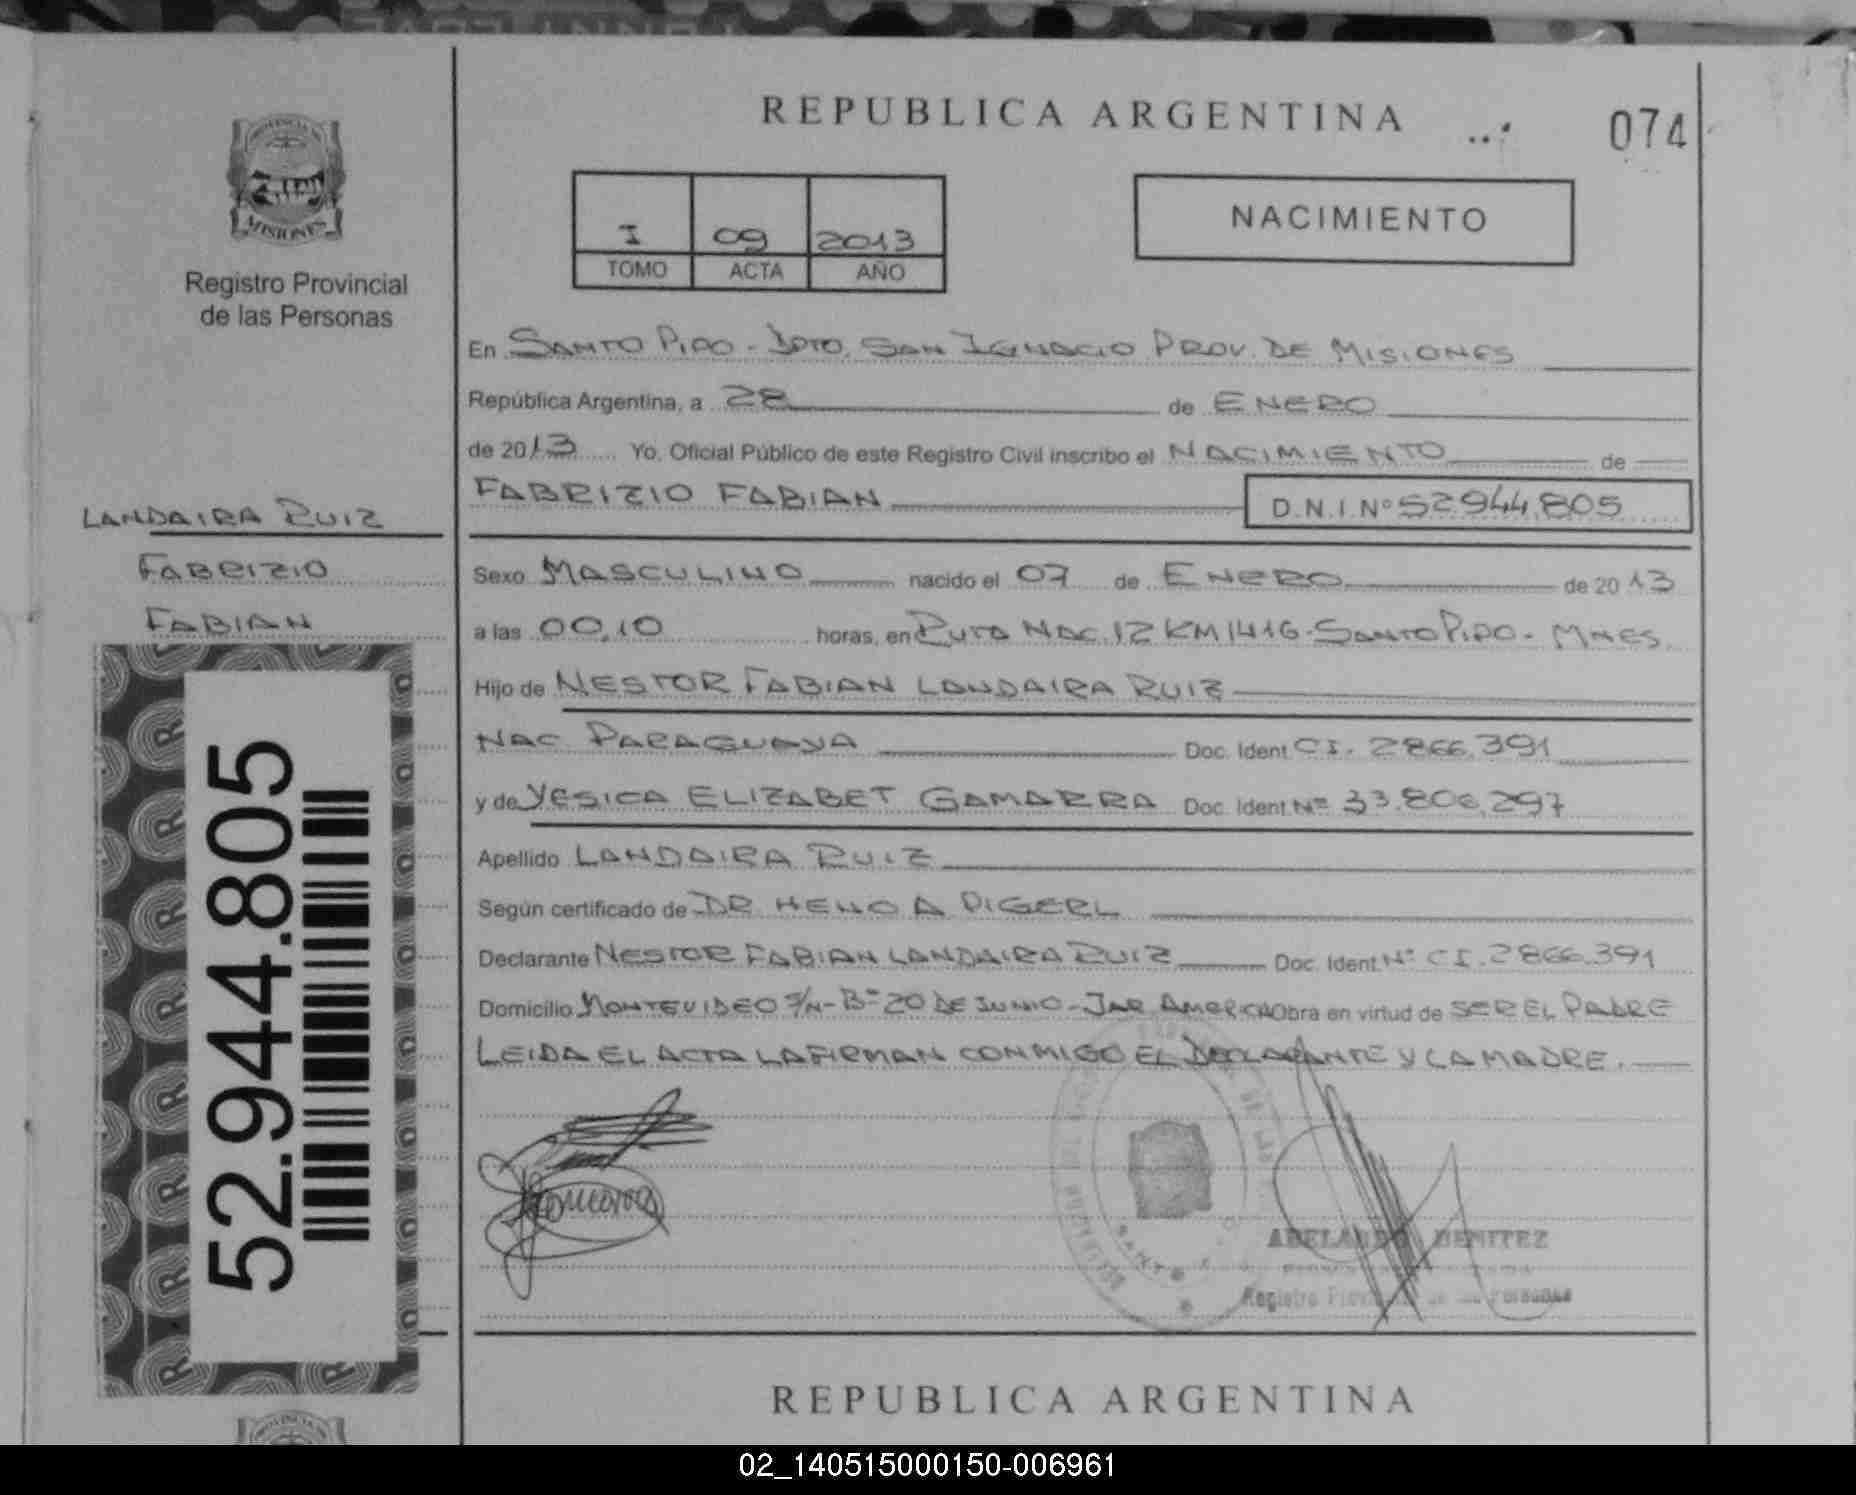 REPUBLICA ARGENTINA
074
PROVINCIA DE
MISIONES
Registro Provincial
de las Personas
I 09 2013
TOMO ACTA AÑO
NACIMIENTO
En SANTO PIPO - DPTO. SAN IGNACIO PROV. DE MISIONES
República Argentina, a 28 de ENERO
de 2013 Yo, Oficial Público de este Registro Civil inscribo el NACIMIENTO de
FABRIZIO FABIAN D.N.I. Nº 52944.805
LANDAIRA RUIZ
FABRIZIO
FABIAN
Sexo MASCULINO nacido el 07 de ENERO de 2013
a las 00,10 horas, en RUTA NAC. 12 KM 1416 - SANTO PIPO - MNES.
Hijo de NESTOR FABIAN LANDAIRA RUIZ
NAC. PARAGUAYA Doc. Ident. CI. 2866.391
y de YESICA ELIZABET GAMARRA Doc. Ident. Nº 33.806.297
Apellido LANDAIRA RUIZ
Según certificado de DR HELIO A PIGERL
Declarante NESTOR FABIAN LANDAIRA RUIZ Doc. Ident. Nº CI. 2866.391
Domicilio MONTEVIDEO S/N - Bº 20 DE JUNIO - JAR. AMERICA Obra en virtud de SER EL PADRE
LEIDA EL ACTA LA FIRMAN CONMIGO EL DECLARANTE Y LA MADRE.
52.944.805
ABELARDO BENITEZ
Registro Provincial de las Personas
REPUBLICA ARGENTINA
02_140515000150-006961